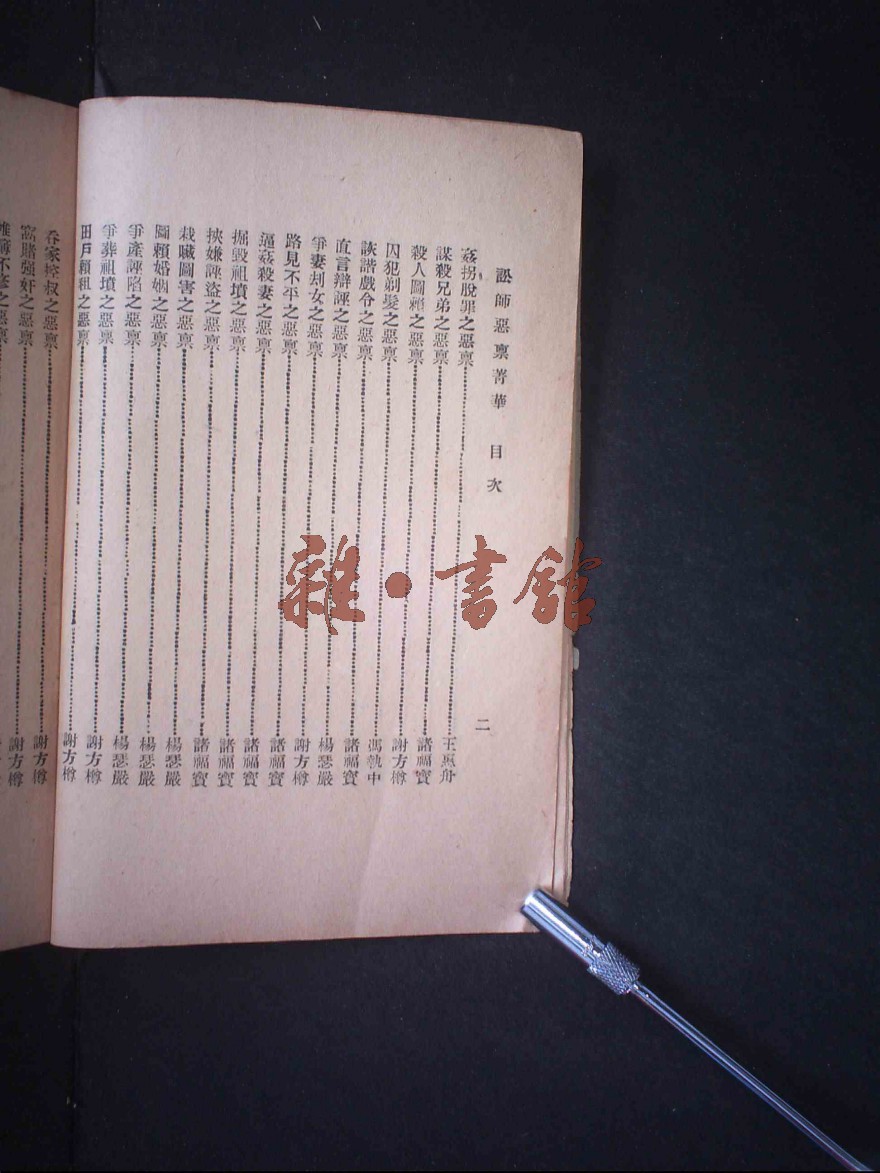 訟師惡禀菁華 目次
二
姦拐脫罪之惡禀 王惠舟
謀殺兄弟之惡禀 諸福寶
殺人圖賴之惡禀 謝方樽
囚犯剃髮之惡禀 馮執中
詼諧戲令之惡禀 諸福寶
直言辯誣之惡禀 楊瑟嚴
爭妻刦女之惡禀 謝方樽
路見不平之惡禀 諸福寶
逼姦殺妻之惡禀 諸福寶
掘毀祖墳之惡禀 諸福寶
挾嫌誣盜之惡禀 諸福寶
栽贓圖害之惡禀 楊瑟嚴
圖賴婚姻之惡禀 楊瑟嚴
爭產誣陷之惡禀 楊瑟嚴
爭葬祖墳之惡禀 謝方樽
田戶賴租之惡禀 謝方樽
吞家控叔之惡禀 謝方樽
窩賭强奸之惡禀 謝方樽
薄不修之惡禀
雜·書館